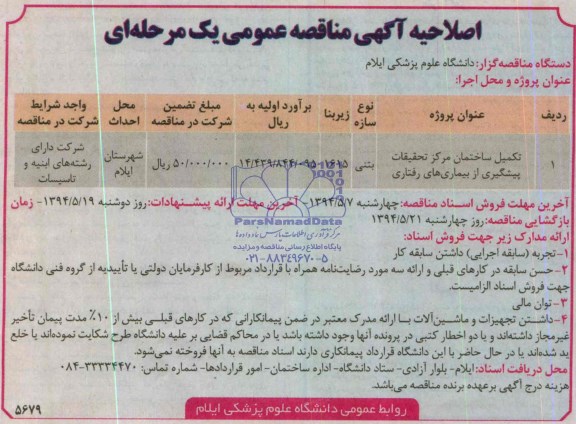 اصلاحیه آگهی مناقصه عمومی یک مرحله‌ای
دستگاه مناقصه‌گزار: دانشگاه علوم پزشکی ایلام
عنوان پروژه و محل اجرا:
ردیف عنوان پروژه نوع سازه زیربنا برآورد اولیه به ریال مبلغ تضمین شرکت در مناقصه محل احداث واجد شرایط شرکت در مناقصه
۱ تکمیل ساختمان مرکز تحقیقات پیشگیری از بیماری‌های رفتاری بتنی ۵۰/۰۰۰/۰۰۰ ریال شهرستان ایلام شرکت دارای رشته‌های ابنیه و تاسیسات
آخرین مهلت فروش اسناد مناقصه: چهارشنبه ۱۳۹۴/۵/۷- آخرین مهلت ارائه پیشنهادات: روز دوشنبه ۱۳۹۴/۵/۱۹- زمان
بازگشایی مناقصه: روز چهارشنبه ۱۳۹۴/۵/۲۱
ارائه مدارک زیر جهت فروش اسناد:
۱- تجربه (سابقه اجرایی) داشتن سابقه کار
۲- حسن سابقه در کارهای قبلی و ارائه سه مورد رضایت‌نامه همراه با قرارداد مربوط از کارفرمایان دولتی یا تأییدیه از گروه فنی دانشگاه
جهت فروش اسناد الزامیست.
۳- توان مالی
۴- داشتن تجهیزات و ماشین‌آلات با ارائه مدرک معتبر در ضمن پیمانکارانی که در کارهای قبلی بیش از ۱۰٪ مدت پیمان تأخیر
غیرمجاز داشته‌اند و یا دو اخطار کتبی در پرونده آنها وجود داشته باشد یا در محاکم قضایی بر علیه دانشگاه طرح شکایت نموده‌اند یا خلع
ید شده‌اند یا در حال حاضر با این دانشگاه قرارداد پیمانکاری دارند اسناد مناقصه به آنها فروخته نمی‌شود.
محل دریافت اسناد: ایلام- بلوار آزادی- ستاد دانشگاه- اداره ساختمان- امور قراردادها- شماره تماس: ۳۳۳۳۴۴۷۰-۰۸۴
هزینه درج آگهی برعهده برنده مناقصه می‌باشد.
روابط عمومی دانشگاه علوم پزشکی ایلام
۵۶۷۹
ParsNamadData
پایگاه اطلاع رسانی مناقصه و مزایده
۰۲۱-۸۸۳۴۹۶۷۰-۵